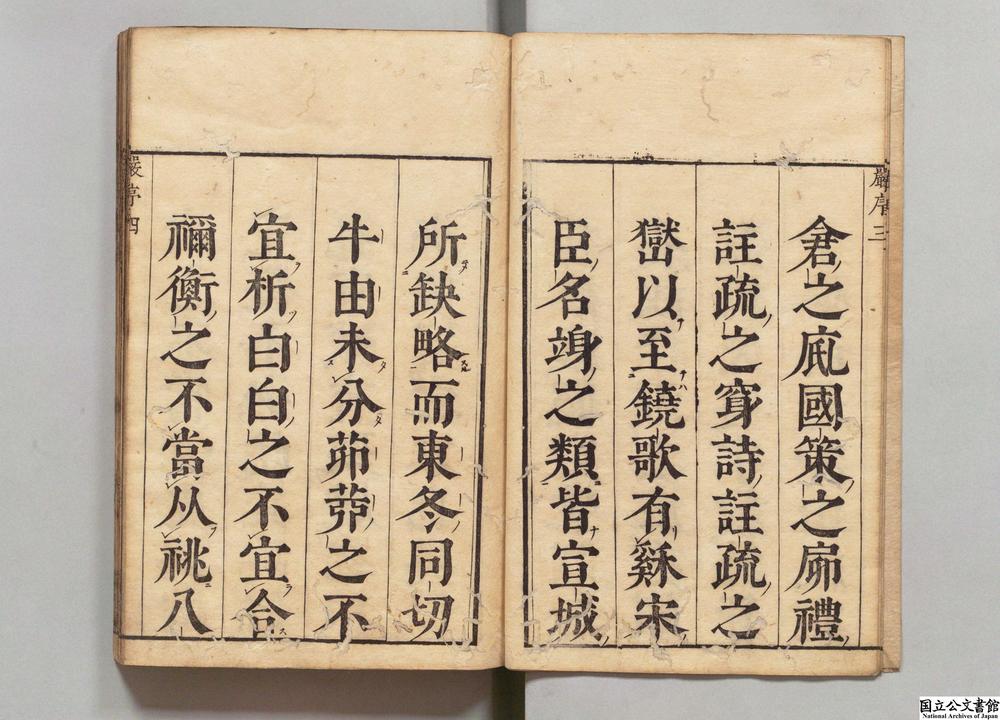 嚴序 三
侖之庣國策之帍禮
註疏之穿詩註疏之
嶽以至鐃歌有繇宋
臣名竧之類皆宣城
所缺略而東冬同切
牛由未分茆茆之不
宜析白白之不宜合
禰衡之不當从祧八
嚴序 四
国立公文書館
National Archives of Japan